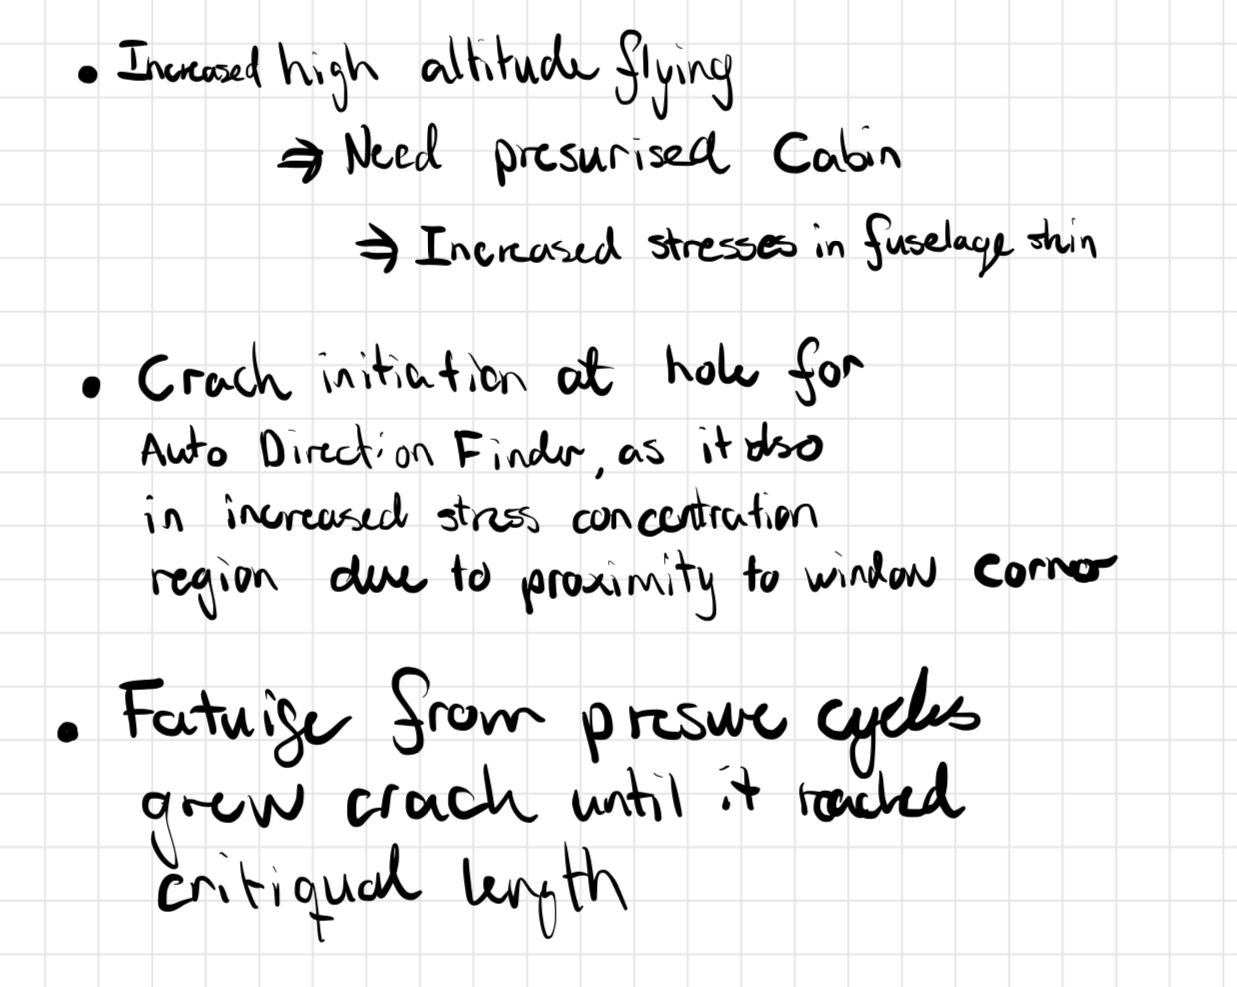 • Increased high altitude flying
⇒ Need presurised Cabin
⇒ Increased stresses in fuselage skin
• Crack initiation at hole for
Auto Direction Finder, as it also
in increased stress concentration
region due to proximity to window corner
• Fatuige from presure cycles
grew crack until it reached
critiqual length